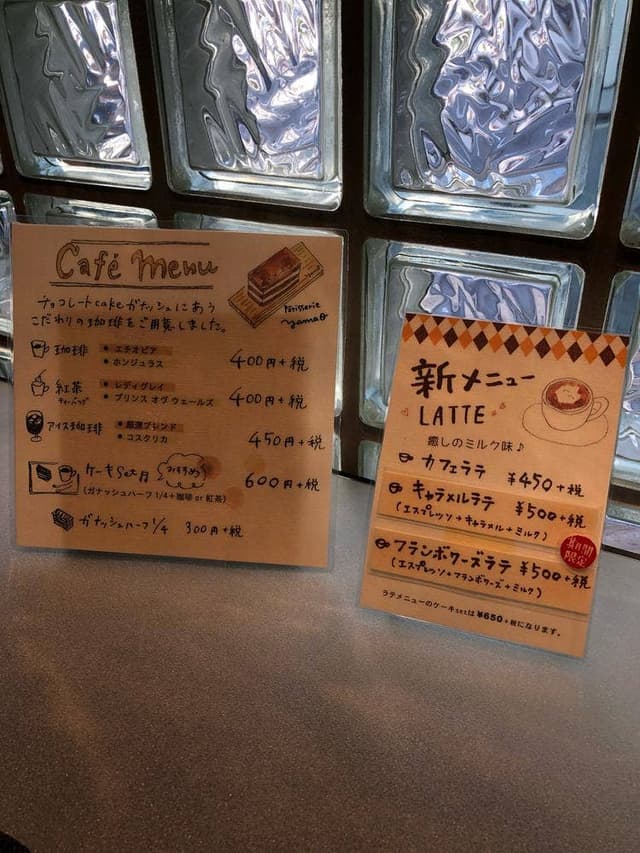 Café Menu
チョコレートcakeガナッシュにあう
こだわりの珈琲をご用意しました。
Pâtisserie
yamao
珈琲 ・エチオピア
・ホンジュラス
400円+税
紅茶 ・レディグレイ
ティーバッグ ・プリンス オヴ ウェールズ
400円+税
アイス珈琲 ・厳選ブレンド
・コスタリカ
450円+税
ケーキSet おすすめ
600円+税
(ガナッシュハーフ 1/4+珈琲 or 紅茶)
ガナッシュハーフ1/4 300円+税
新メニュー
LATTE
癒しのミルク味♪
カフェラテ ¥450+税
キャラメルラテ ¥500+税
(エスプレッソ+キャラメル+ミルク)
期間
限定
フランボワーズラテ ¥500+税
(エスプレッソ+フランボワーズ+ミルク)
ラテメニューのケーキsetは¥650+税になります。